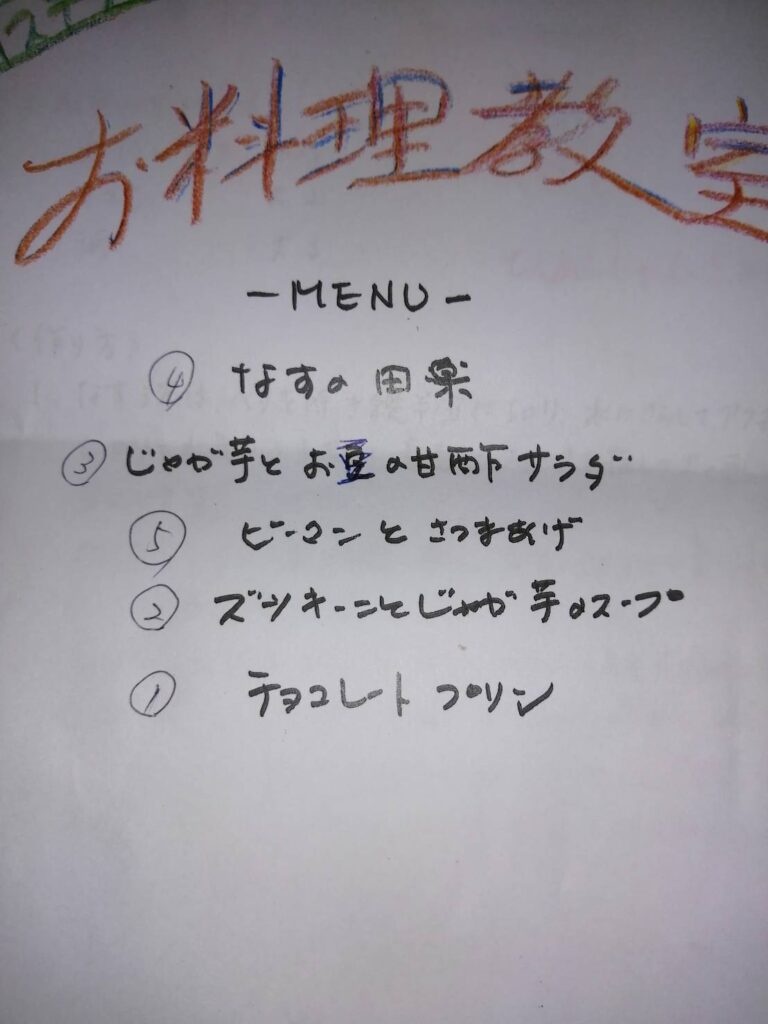 お料理教室
-MENU-
④ なすの田楽
③ じゃが芋とお豆の甘酢サラダ
⑤ ピーマンとさつまあげ
② ズッキーニとじゃが芋のスープ
① チョコレートプリン